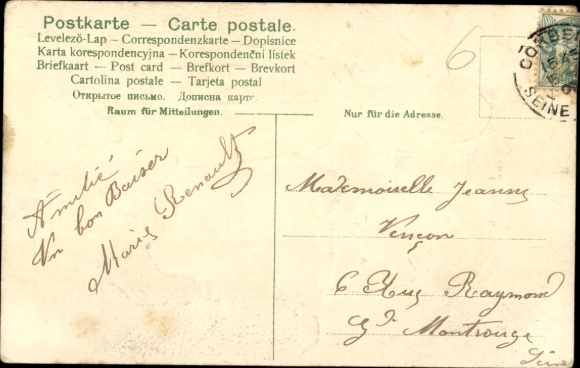 Postkarte — Carte postale.
Levelező-Lap — Correspondenzkarte — Dopisnice
Karta korespondencyjna — Korespondenční lístek
Briefkaart — Post card — Brefkort — Brevkort
Cartolina postale — Tarjeta postal
Открытое письмо. Дописна карт
Raum für Mitteilungen.
Nur für die Adresse.
6
CORBEI
SEINE
Amitié
Un bon Baiser
Marie Renault
Mademoiselle Jeanne
Vençon
6 Rue Raymond
Gd Montrouge
Seine